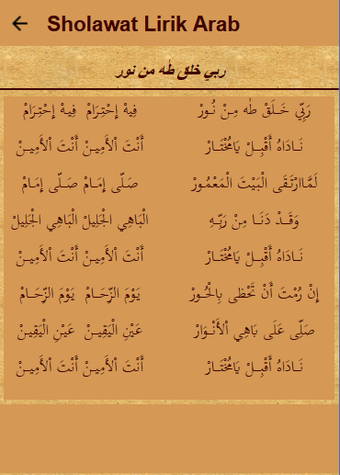 Sholawat Lirik Arab
ربي خلق طه من نور
رَبِّي خَـلَقْ طٰه مِـنْ نُـورْ فِيهْ احْتِـرَامْ فِيهْ احْتِـرَامْ
نَـادَاهُ أَقْبِـلْ يَامُخْتَـارْ أَنْتَ الْأَمِيـنْ أَنْتَ الْأَمِيـنْ
لَمَّاارْتَـقَى الْبَيْـتَ الْمَعْمُـورْ صَلّى إِمَـامْ صَلّى إِمَـامْ
وَقَـدْ دَنَـا مِنْ رَبِّـهِ الْبَاهِي الْجَلِيلْ الْبَاهِي الْجَلِيلْ
نَـادَاهُ أَقْبِـلْ يَامُخْتَـارْ أَنْتَ الْأَمِيـنْ أَنْتَ الْأَمِيـنْ
إِنْ رُمْتَ أَنْ تَحْظى بِالْحُـورْ يَوْمَ الزِّحَـامْ يَوْمَ الزِّحَـامْ
صَلِّى عَلَى بَاهِي الْأَنْـوَارْ عَيْنِ الْيَقِيـنْ عَيْنِ الْيَقِيـنْ
نَـادَاهُ أَقْبِـلْ يَامُخْتَـارْ أَنْتَ الْأَمِيـنْ أَنْتَ الْأَمِيـنْ